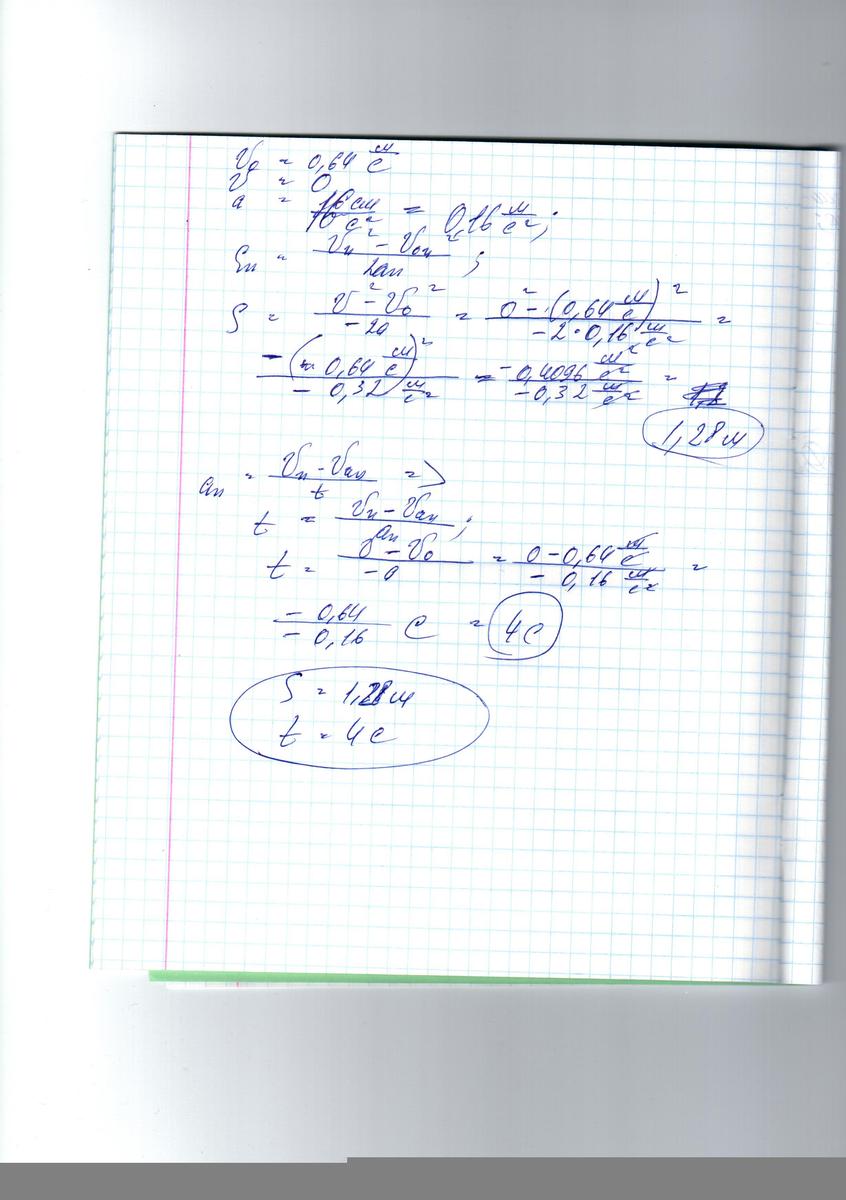 V₀ = 0,64 м/с
V = 0
a = 16 см/с² = 0,16 м/с²;
Sₙ = (Vₙ² - V₀ₙ²)/2aₙ;
S = (V² - V₀²)/-2a = (0² - (0,64 м/с)²)/(-2·0,16 м/с²) =
-(0,64 м/с)²/(-0,32 м/с²) = (-0,4096 м²/с²)/(-0,32 м/с²) =
1,28 м
aₙ = (Vₙ - V₀ₙ)/t =>
t = (Vₙ - V₀ₙ)/aₙ;
t = (V - V₀)/-a = (0 - 0,64 м/с)/(-0,16 м/с²) =
(-0,64)/(-0,16) с = 4 с
S = 1,28 м
t = 4 с